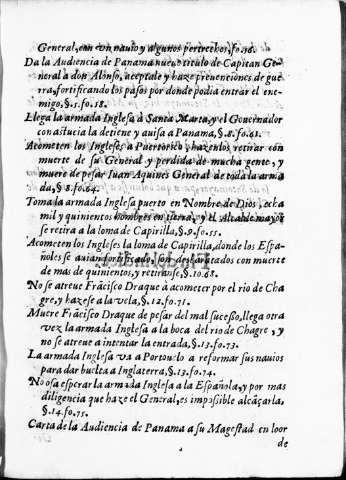 General, con vn nauio y algunos pertrechos, fo.16.
Da la Audiencia de Panama nueuo titulo de Capitan Ge-
neral a don Alonso, aceptale y haze preuenciones de gue
rra, fortificando los pasos por donde podia entrar el ene-
migo, §.5.fo.18.
Llega la armada Inglesa à Santa Marta, y el Gouernador
con astucia la detiene y auisa a Panama, §.8.fo.61.
Acometen los Ingleses a Puertorico, hazenlos retirar con
muerte de su General y perdida de mucha gente, y
muere de pesar Iuan Aquines General de toda la arma
da, §.8.fo.64.
Toma la armada Inglesa puerto en Nombre de Dios, echa
mil y quinientos hombres en tierra, y el Alcalde mayor
se retira a la loma de Capirilla, §.9.fo.55.
Acometen los Ingleses la loma de Capirilla, donde los Espa-
ñoles se auian fortificado, son desbaratados con muerte
de mas de quinientos, y retiranse, §.10.68.
No se atreue Frãcisco Draque à acometer por el rio de Cha
gre, y hazese a la vela, §.12.fo.71.
Muere Frãcisco Draque de pesar del mal suceßo, llega otra
vez la armada Inglesa a la boca del rio de Chagre, y
no se atreue a intentar la entrada, §.13.fo.73.
La armada Inglesa va a Portouelo a reformar sus nauios
para dar buelta a Inglaterra, §.13.fo.74.
No osa esperar la armada Inglesa a la Española, y por mas
diligencia que haze el General, es impoßible alcãçarla,
§.14.fo.75.
Carta de la Audiencia de Panama a su Magestad en loor
de